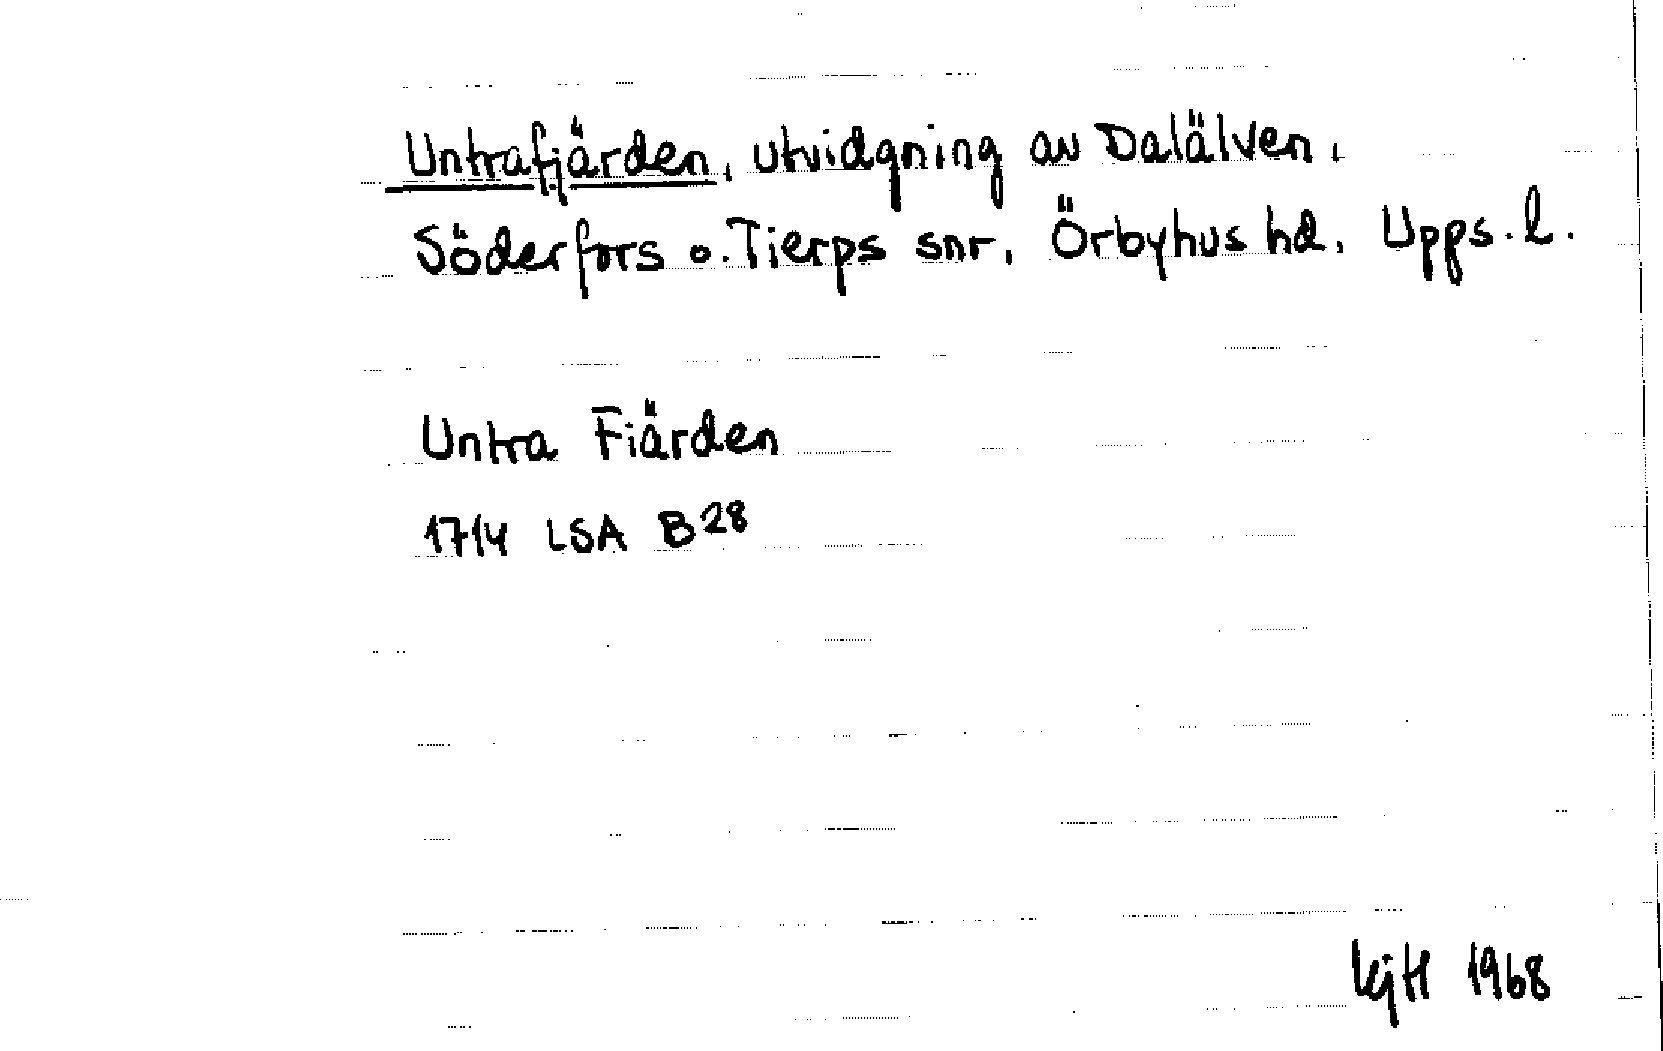 Untrafjärden, utvidgning av Dalälven,
Söderfors o. Tierps snr, Örbyhus hd, Upps. l.
Untra Fiärden
1714 LSA B28
1968